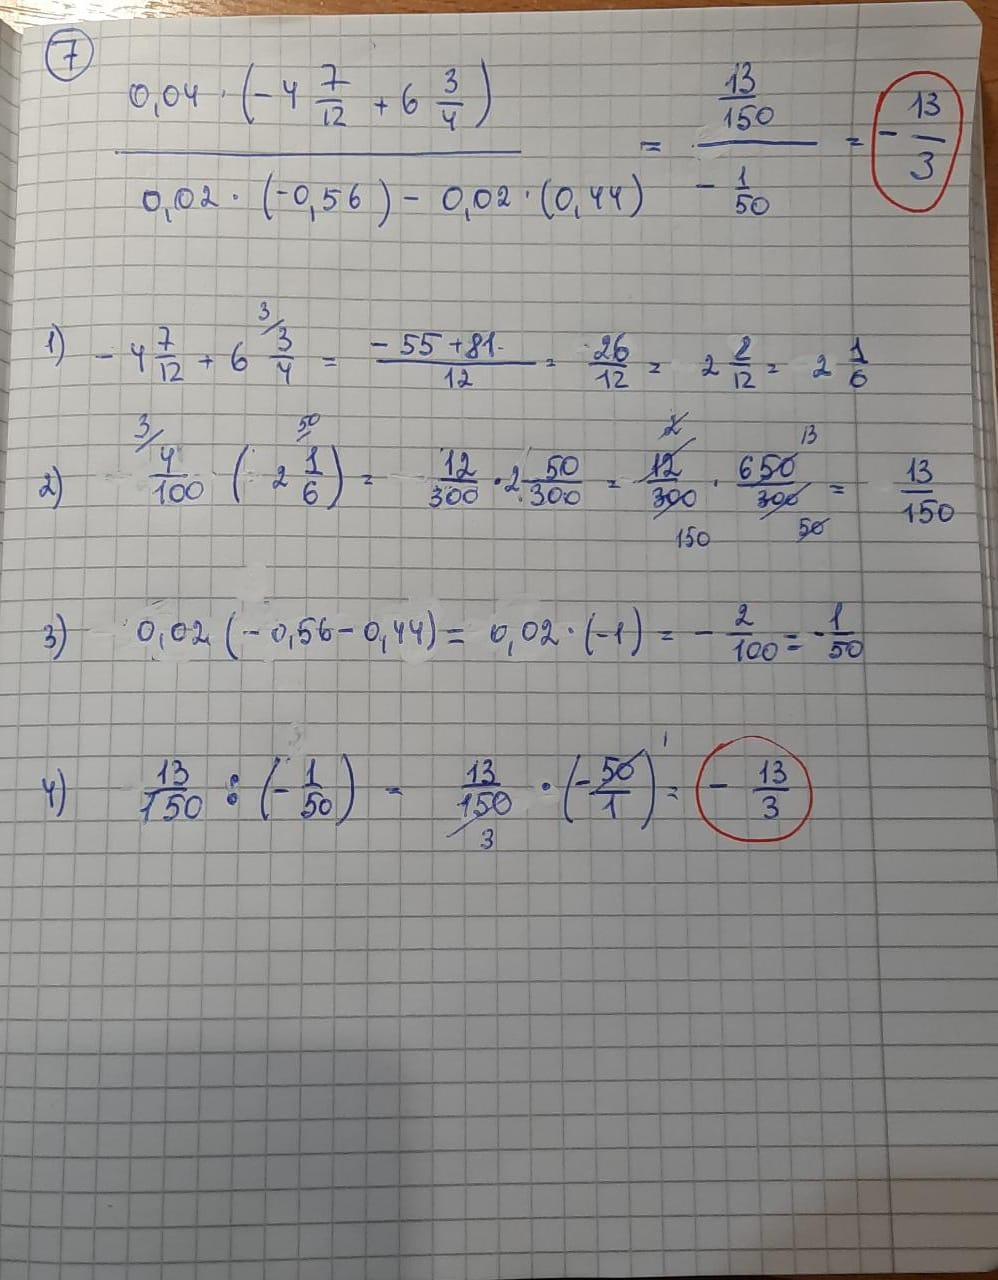 7
0,04 · (-4 7/12 + 6 3/4) / 0,02 · (-0,56) - 0,02 · (0,44) = 13/150 / - 1/50 = - 13/3
1) - 4 7/12 + 6 3/ 3/4 = -55+81/12 = 26/12 = 2 2/12 = 2 1/6
2) 3/ 4/100 ( 2 50/ 1/6 ) = 12/300 · 2 50/300 = 12/300 2 150 · 650/300 13 50 = 13/150
3) 0,02 (-0,56-0,44) = 0,02 · (-1) = - 2/100 = - 1/50
4) 13/150 : (- 1/50) = 13/150 3 · (- 50/1) 1 = - 13/3